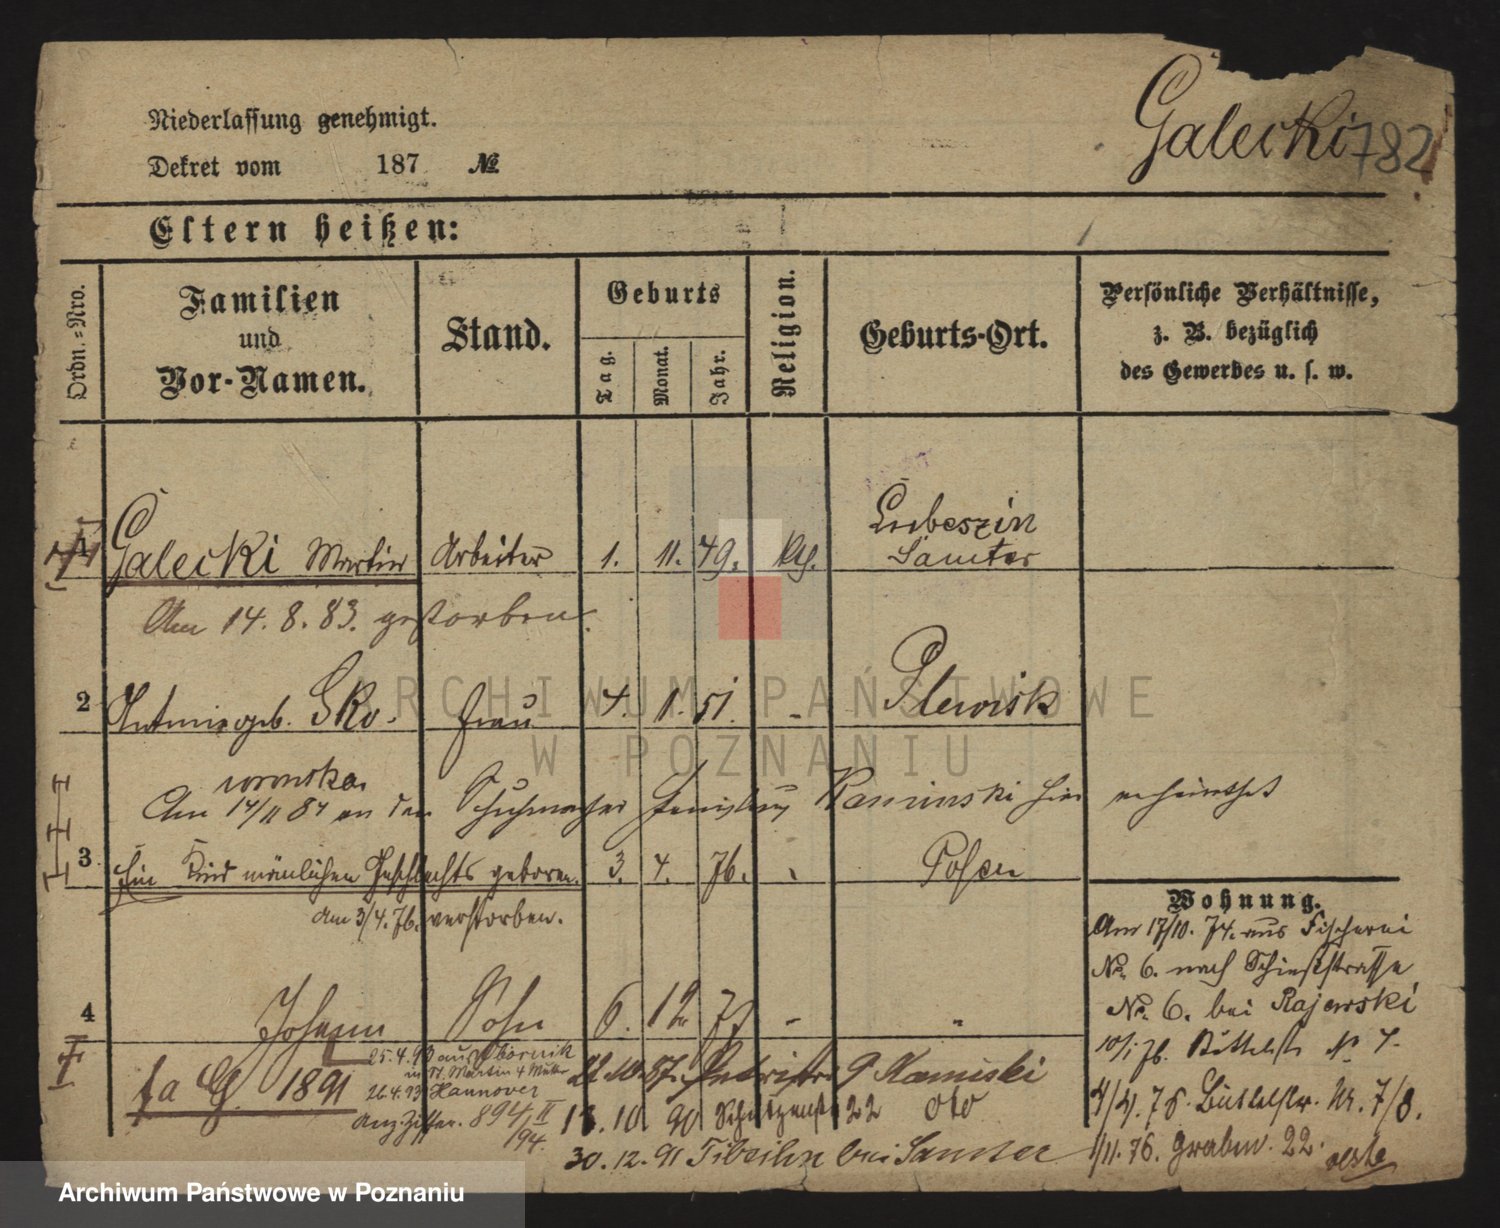 Niederlassung genehmigt.
Galecki 782
Dekret vom 187 №
Eltern heißen:
Ordn.-Nro.
Familien
und
Vor-Namen.
Stand.
Geburts
Tag.
Monat.
Jahr.
Religion.
Geburts-Ort.
Persönliche Verhältnisse,
z. B. bezüglich
des Gewerbes u. s. w.
1 Galecki Martin Arbeiter 1. 11. 49. Kth. Lubeszin
Samter
Am 14. 8. 83. gestorben.
2 Antonie geb. Sko- Frau 4. 1. 51. - Plewisk
wronska.
Am 14/11 84 an den Schuhmacher Kaminski hier verheirathet
3 Ein Kind mänlichen Geschlechts geboren. 3. 4. 76. - Posen
am 3/4. 76. verstorben.
Wohnung.
Am 17/10. 74. aus Fischerei
No. 6. nach Schiesstrasse
No. 6. bei Rajewski
4 Johann Sohn 6. 12. 77 - "
10/1 76. Büttelstr No 7.
25.4.93 aus Obornik
St. Martin 4 Mutter
26.4.93 Hannover
1891
894/II
194.
22.10.87. 9 Kaminski
13. 10. 90 Schützenstr 22 oto
30. 12. 91 bei Samter
4/4. 76. Büttelstr. Nr. 7/8.
1/11. 76. Graben. 22.
ARCHIWUM PAŃSTWOWE
W POZNANIU
Archiwum Państwowe w Poznaniu